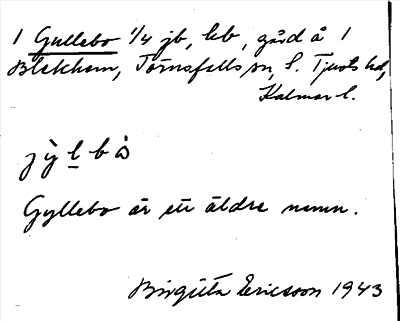 1 Gullebo 1/4 jb, leb, gård å 1
Blekhem, Törnsfalls sn, S. Tjusts hd,
Kalmar l.
jỳl̲bå
Gyllebo är ett äldre namn.
Birgitta Ericsson 1943